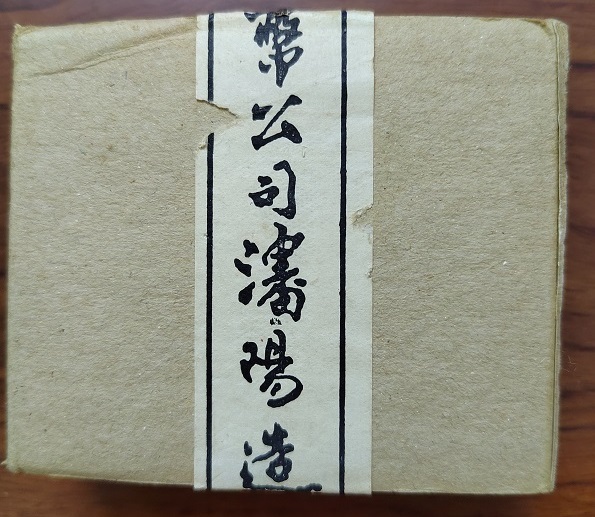 幣公司瀋陽造